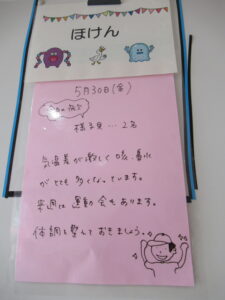 ほけん
5月30日(金)
様子見…2名
気温差が激しく咳、鼻水
がとても多くなっています。
来週は運動会もあります。
体調を整えておきましょう。